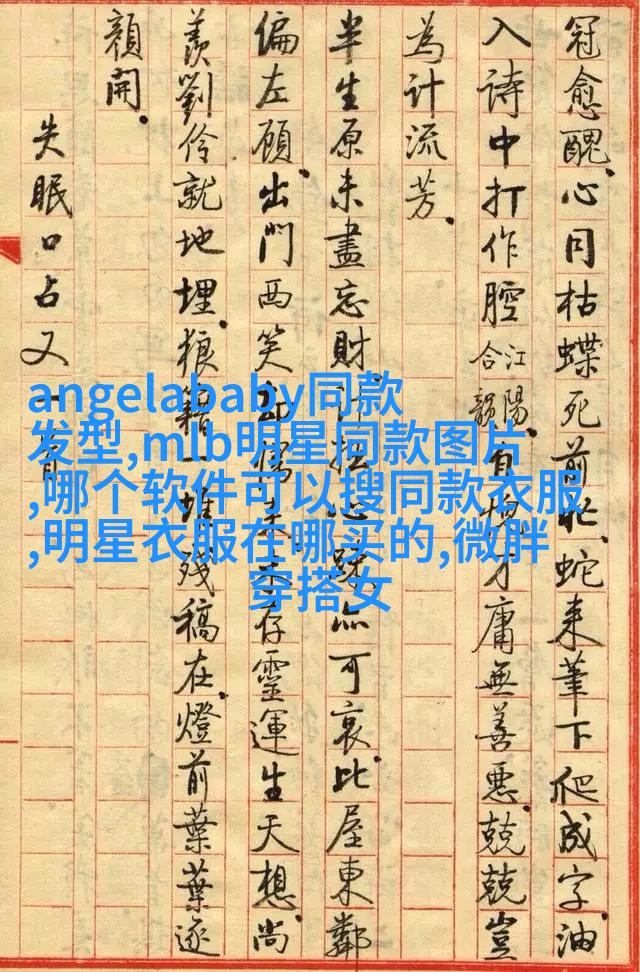 冠愈醜。心同枯蝶死前忙、蛇来筆下爬成字。油
入詩中打作腔江陽合韻。自才庸無善惡。兢兢豈
為計流芳。
半生原未盡忘財計拙心疎亦可哀。比屋東鄰
偏左顧。出門西笑儒未存靈運生天想。尚
羨劉伶就地埋。狼籍一堆殘稿在。燈前葉葉逐
顏開。
失眠口占又一首
angelababy同款
发型,mlb明星同款图片
,哪个软件可以搜同款衣服
,明星衣服在哪买的,微胖
穿搭女